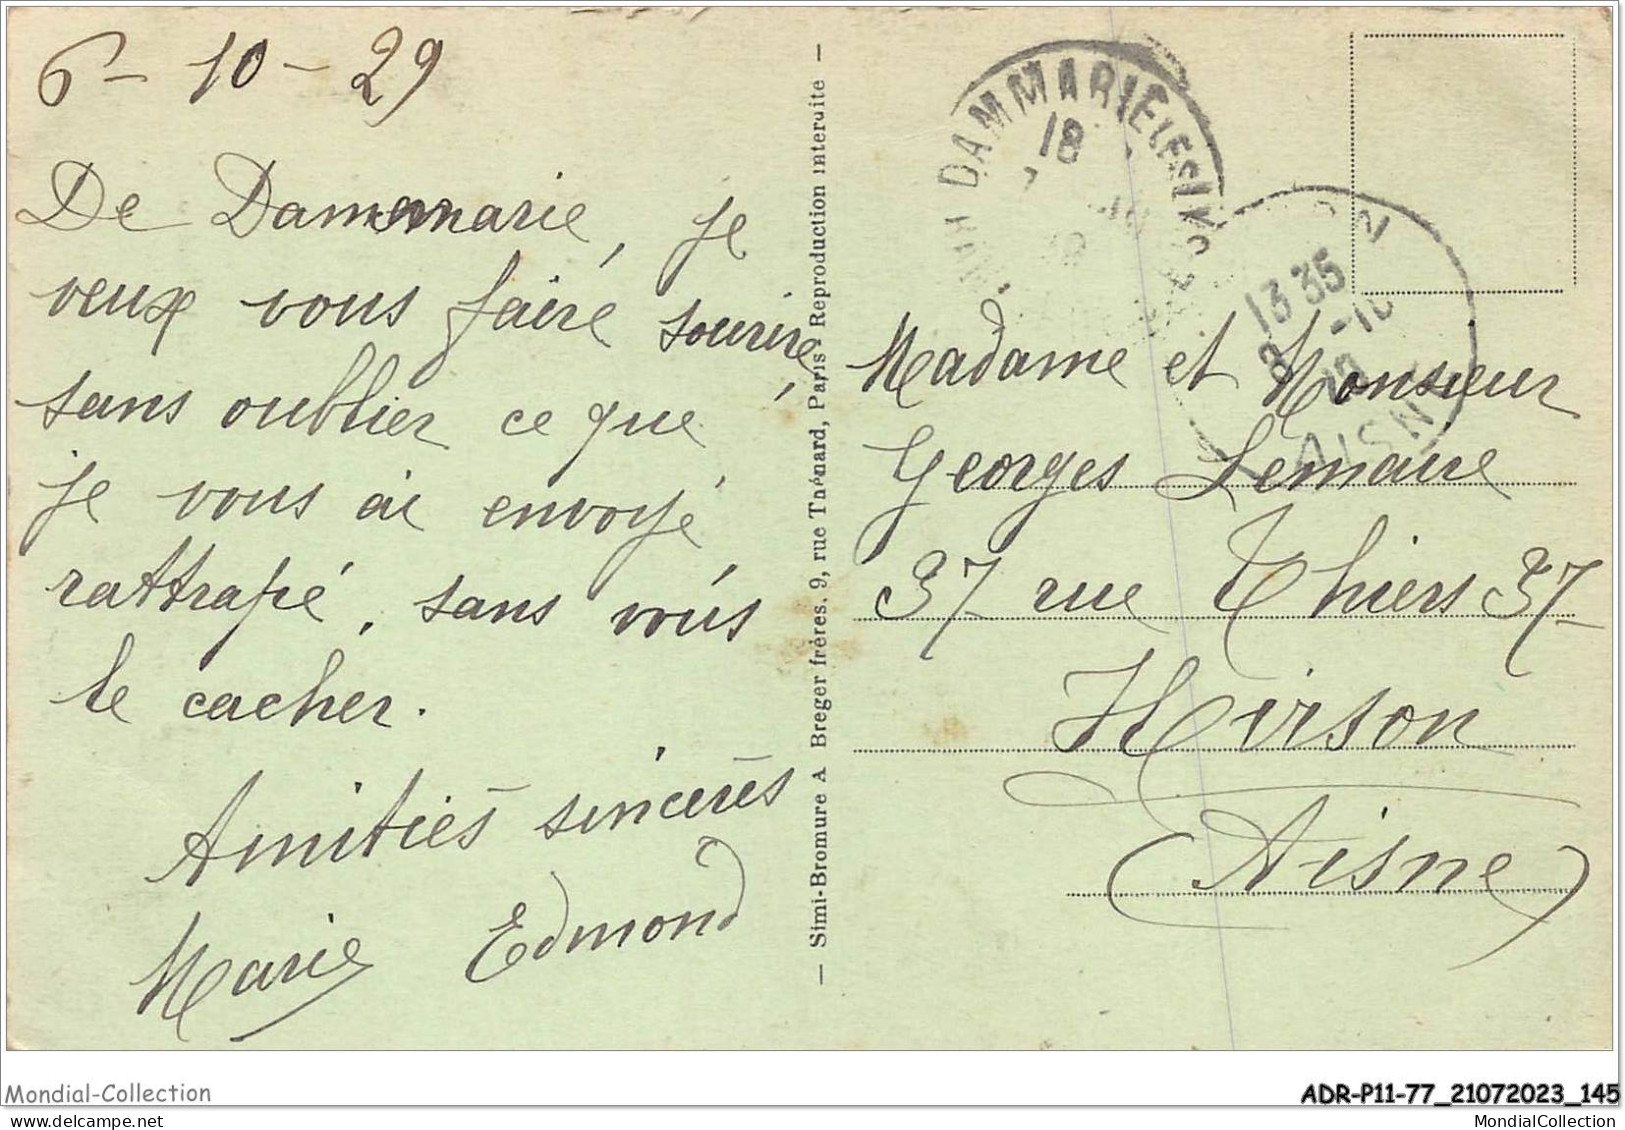 6-10-29
De Dammarie, je
veux vous faire sourire
sans oublier ce que
je vous ai envoyé
rattrapé, sans vous
le cacher.
Amitiés sincères
Marie Edmond
— Simi-Bromure A Breger frères, 9, rue Thénard, Paris - Reproduction interdite —
DAMMARIE LES LYS
18
13 35
8 -10
AISNE
Madame et Monsieur
Georges Lemaire
37 rue Thiers 37
Hirson
(Aisne)
Mondial-Collection
ADR-P11-77_21072023_145
MondialCollection